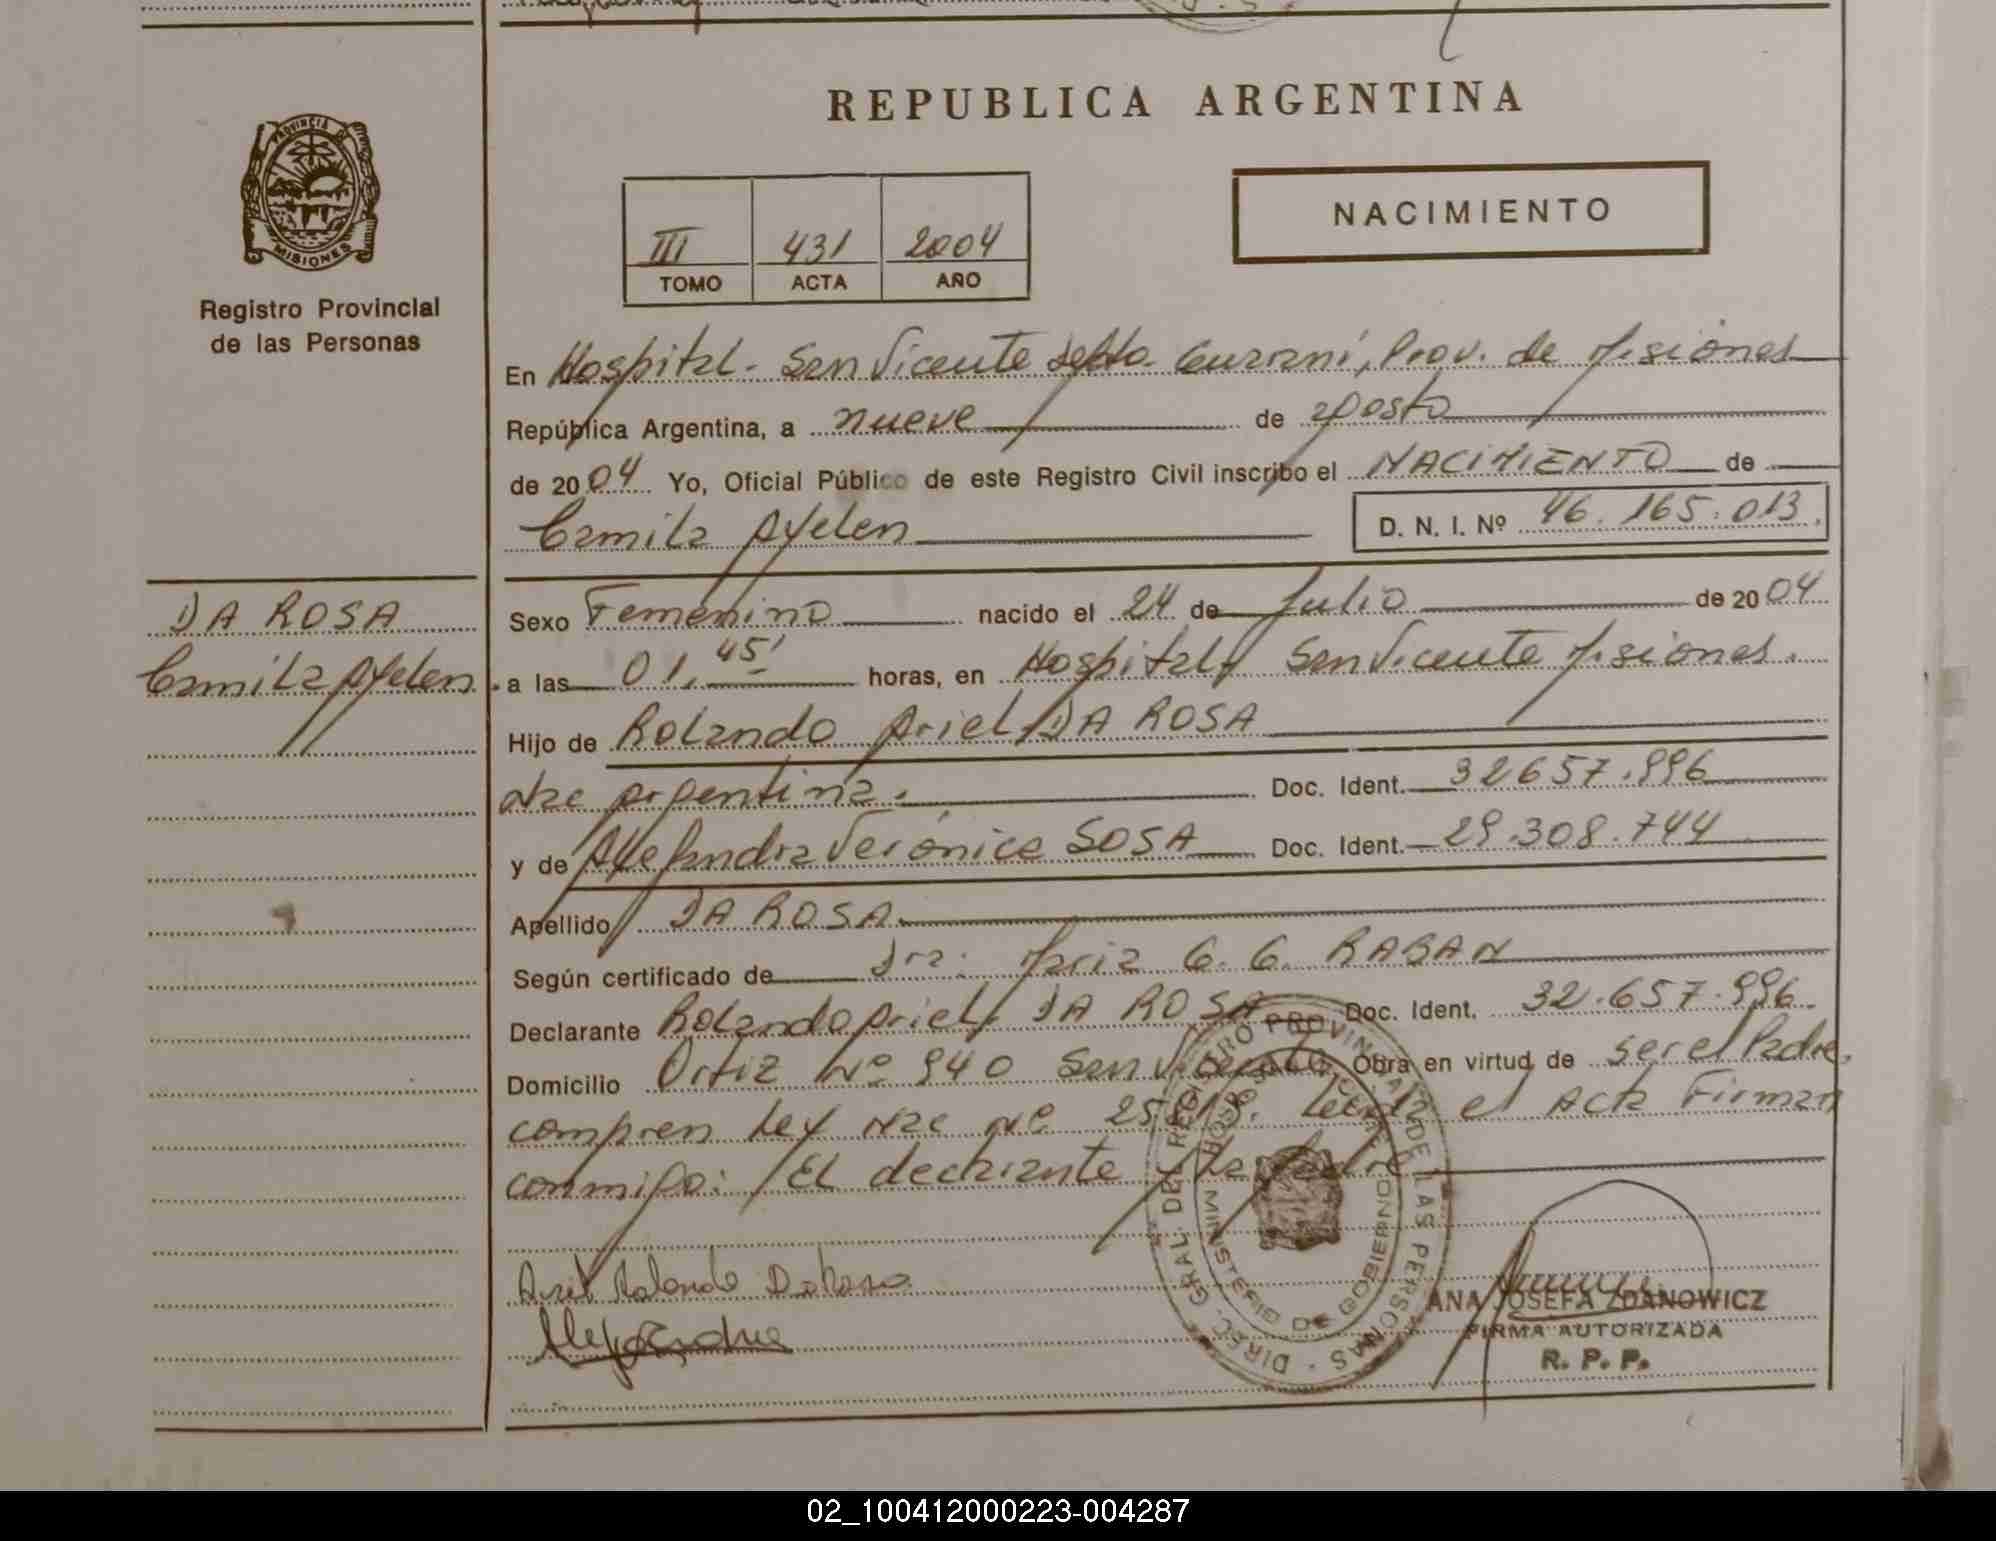 REPUBLICA ARGENTINA
PROVINCIA DE
MISIONES
Registro Provincial
de las Personas
NACIMIENTO
III 431 2004
TOMO ACTA AÑO
En Hospital - San Vicente Depto. Guaraní, Prov. de Misiones
República Argentina, a nueve de agosto
de 2004 Yo, Oficial Público de este Registro Civil inscribo el NACIMIENTO de
Camila Ayelen D. N. I. Nº 46.165.013.
DA ROSA
Camila Ayelen
Sexo Femenino nacido el 24 de Julio de 2004
a las 01,45' horas, en Hospital San Vicente Misiones.
Hijo de Rolando Ariel DA ROSA
Nac Argentina. Doc. Ident. 32657.996
y de Alejandra Verónica SOSA Doc. Ident. 29.308.744
Apellido DA ROSA.
Según certificado de Dra. Maria G. G. RABAN
Declarante Rolando Ariel DA ROSA Doc. Ident. 32.657.996.
Domicilio Ortiz Nº 940 San Vicente Obra en virtud de ser el Padre.
compren Ley Nac Nº Leida el Acta Firman
conmigo: El declarante y la Madre
Ariel Rolando Da Rosa
Alejandra
DIREC. GRAL. DEL REGISTRO PROVINCIAL DE LAS PERSONAS
MINISTERIO DE GOBIERNO
ANA JOSEFA ZDANOWICZ
FIRMA AUTORIZADA
R. P. P.
02_100412000223-004287